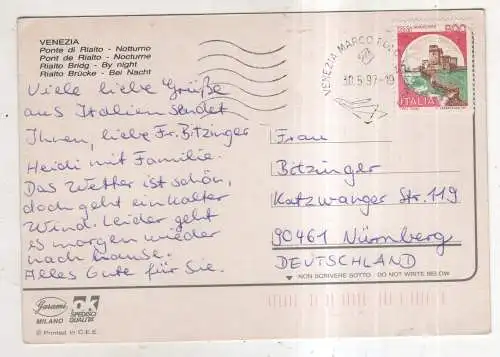 VENEZIA
Ponte di Rialto - Notturno
Pont de Rialto - Nocturne
Rialto Bridg - By night
Rialto Brücke - Bei Nacht
Viele liebe Grüße
aus Italien sendet
Ihnen, liebe Fr. Bitzinger
Heidi mit Familie.
Das Wetter ist schön,
doch geht ein kalter
Wind. Leider geht
es morgen wieder
nach hause.
Alles Gute für Sie.
VENEZIA MARCO POLO
30.5.97-19
ITALIA
Frau
Bitzinger
Katzwanger Str. 119
90461 Nürnberg
DEUTSCHLAND
NON SCRIVERE SOTTO · DO NOT WRITE BELOW
Garami
MILANO
OK
SPEDISCI
QUALITA'
© Printed in C.E.E.